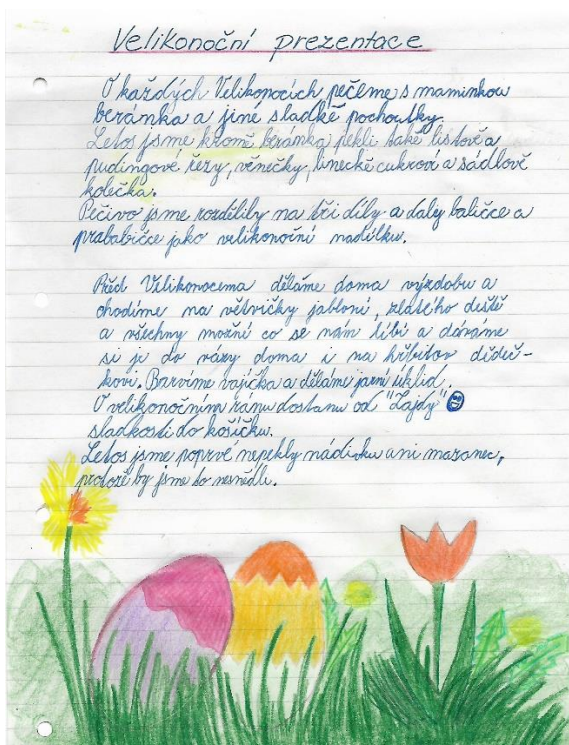 Velikonoční prezentace
O každých Velikonocích pečeme s maminkou
beránka a jiné sladké pochoutky.
Letos jsme kromě beránka pekli také listové a
pudingové řezy, věnečky, linecké cukroví a sádlové
kolečka.
Pečivo jsme rozdělily na tři díly a daly babičce a
prababičce jako velikonoční nadílku.
Před Velikonocema děláme doma výzdobu a
chodíme na větvičky jabloní, zlatého deště
a všechny možné co se nám líbí a dáváme
si je do vázy doma i na hřbitov dědeč-
kovi. Barvíme vajíčka a děláme jarní úklid.
O velikonočním ránu dostanu od "Zajdy"
sladkosti do košíčku.
Letos jsme poprvé nepekly nádivku ani mazanec,
protože by jsme to nesnědli.